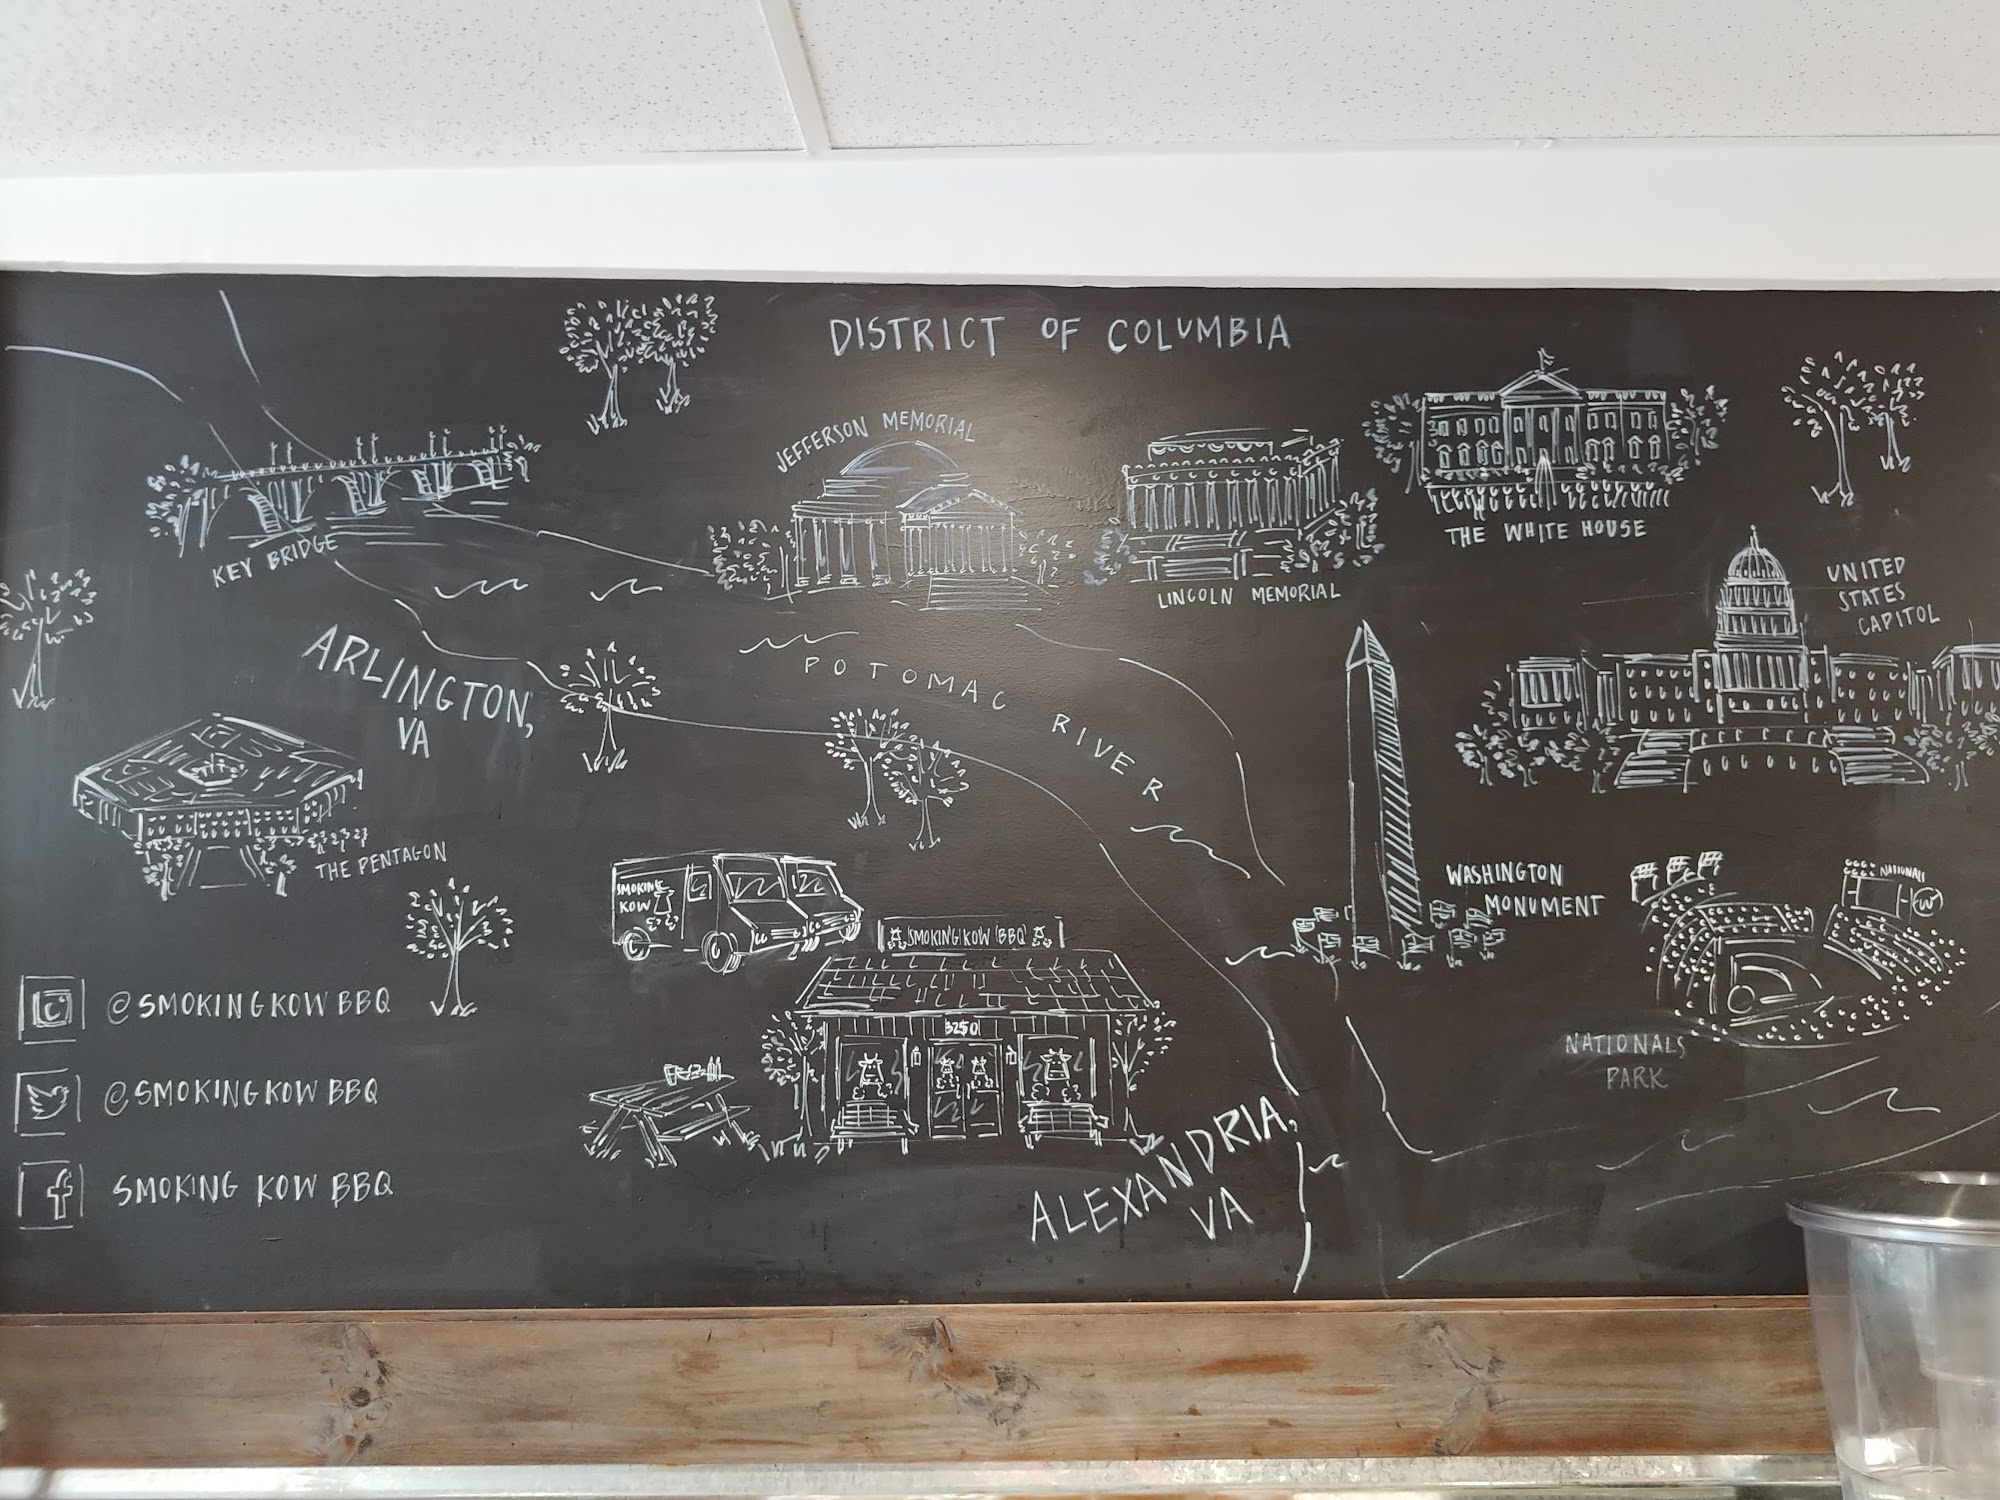 DISTRICT OF COLUMBIA
JEFFERSON MEMORIAL
THE WHITE HOUSE
KEY BRIDGE
LINCOLN MEMORIAL
UNITED
STATES
CAPITOL
ARLINGTON,
VA
POTOMAC RIVER
THE PENTAGON
WASHINGTON
MONUMENT
NATIONALS
W
NATIONALS
PARK
SMOKING
KOW
SMOKING KOW BBQ
3250
@SMOKINGKOWBBQ
@SMOKINGKOWBBQ
f
SMOKING KOW BBQ
ALEXANDRIA,
VA